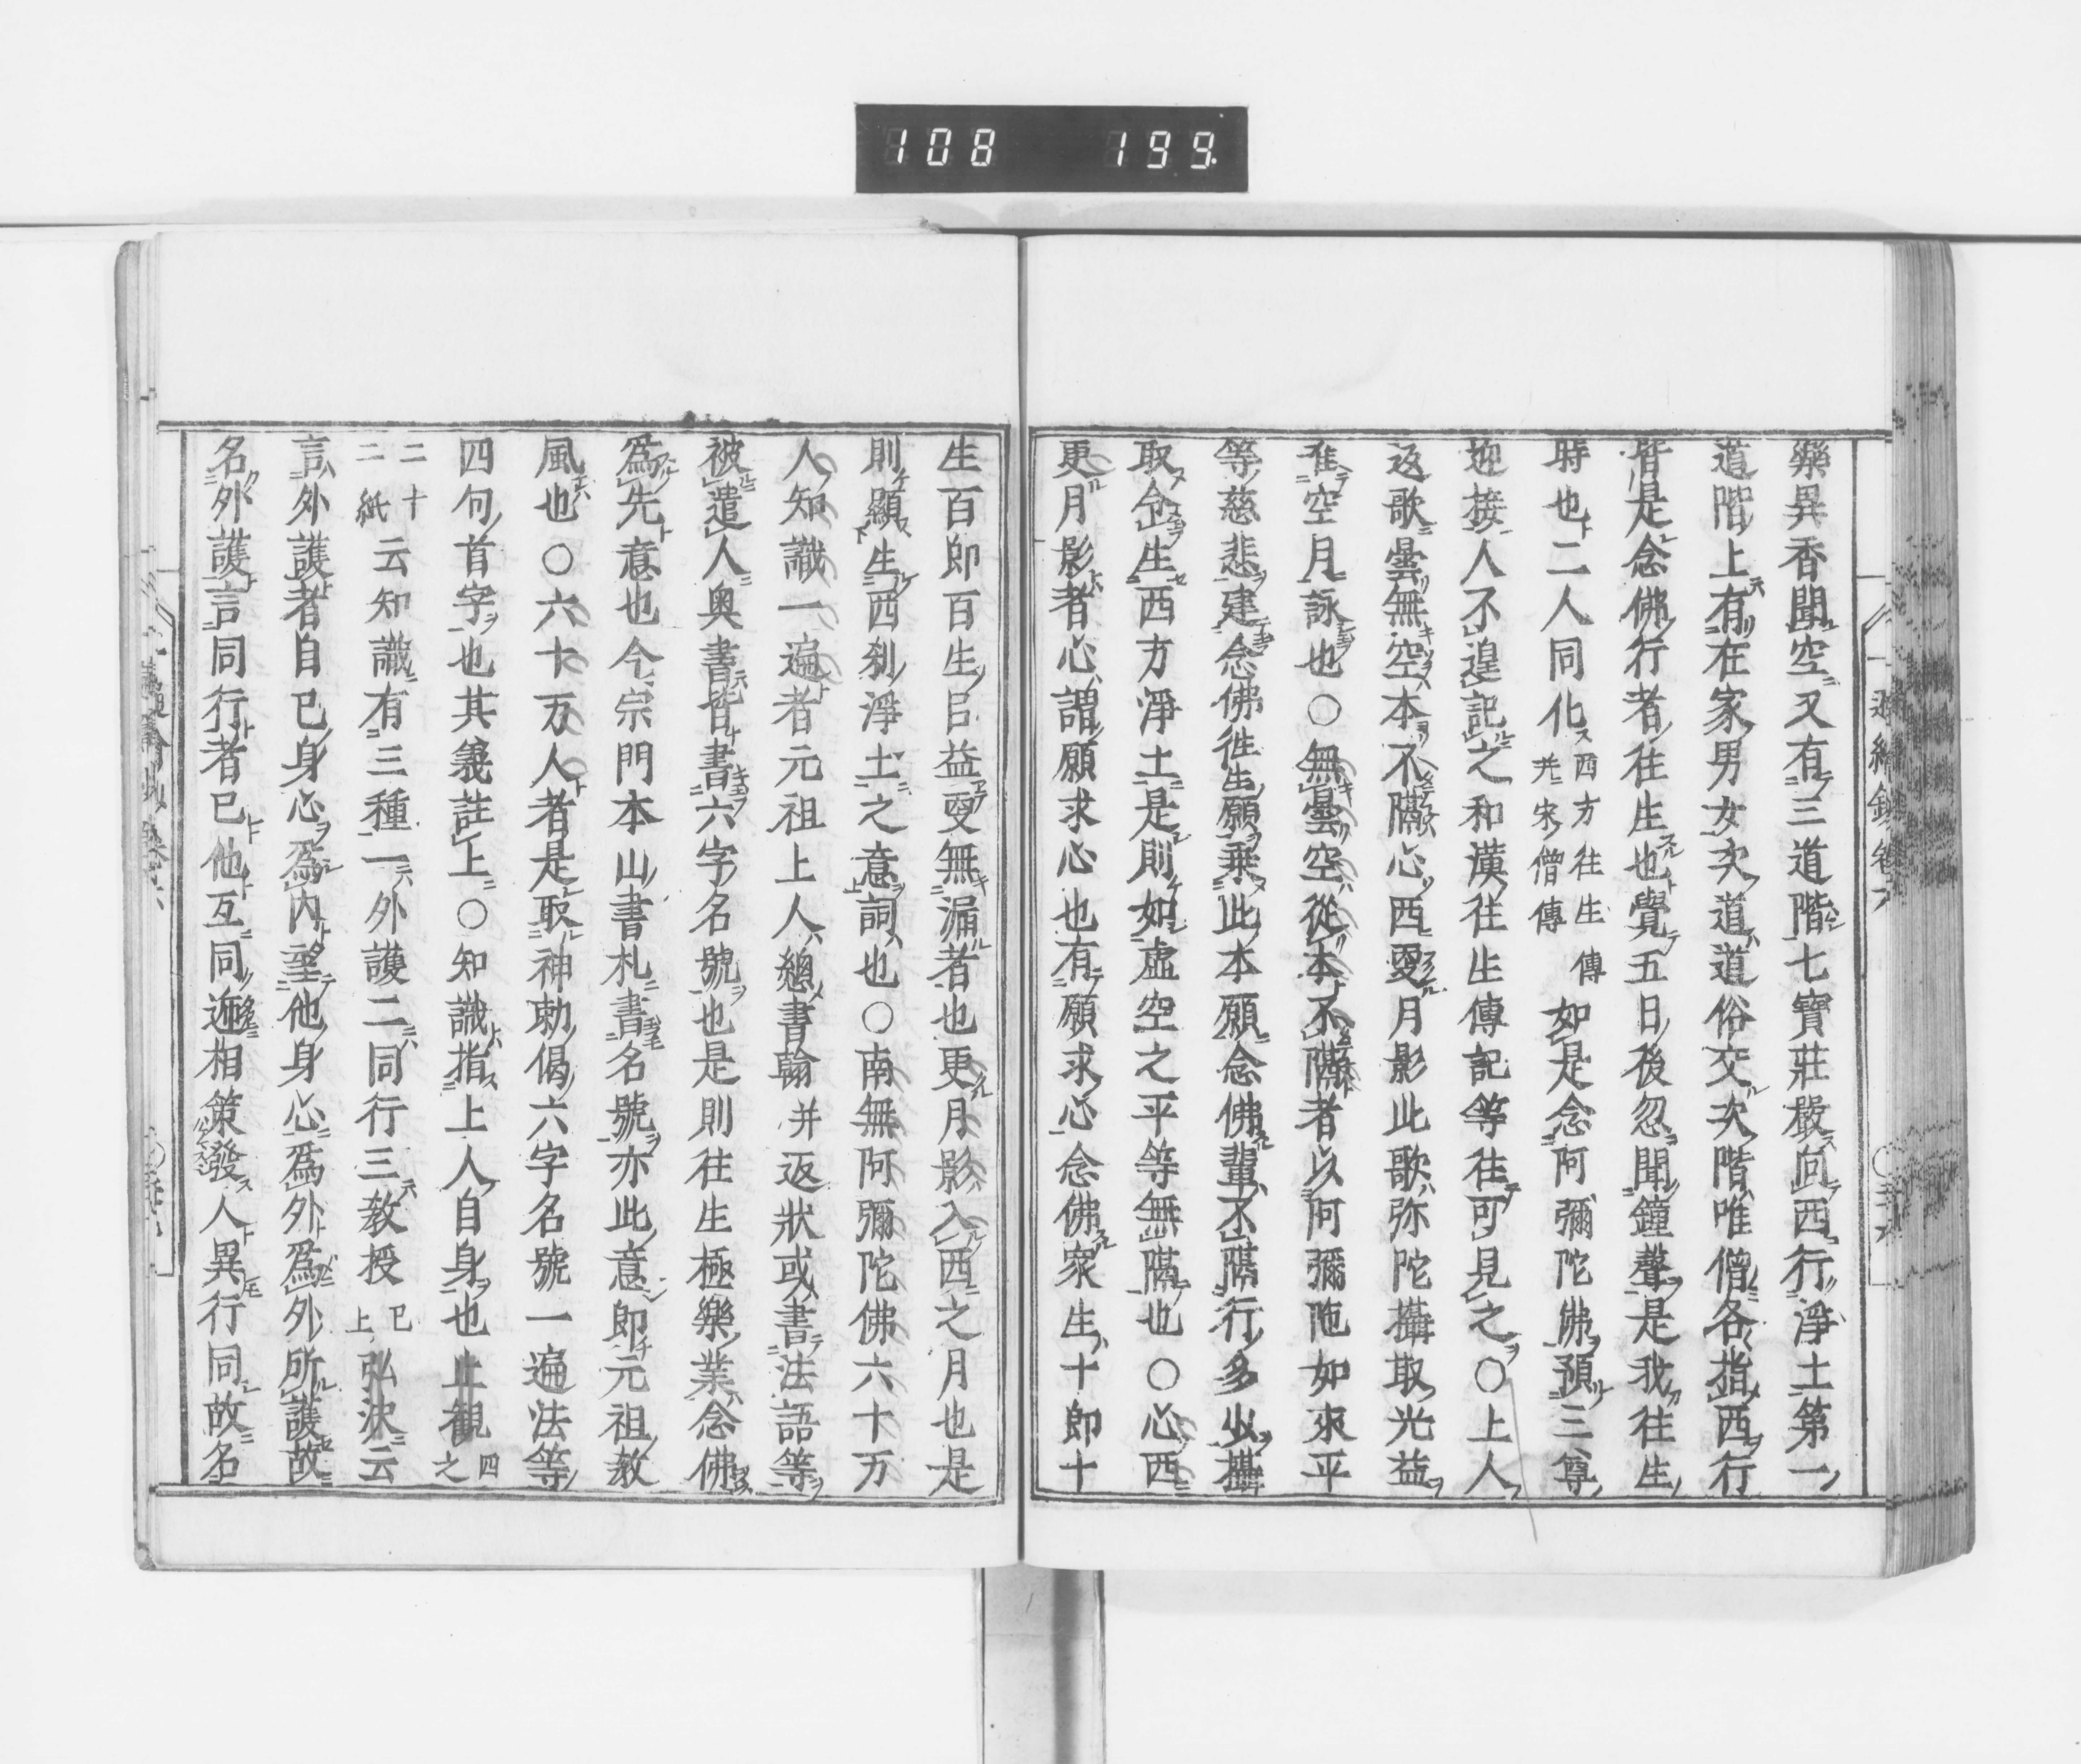 108 199
樂異香聞空又有三道階七寶莊嚴向西行淨土第一
道階上有在家男女次道道俗交次階唯僧各指西行
皆是念佛行者往生也覺五日後忽聞鐘聲是我往生
時也二人同化西方往生傳并宋僧傳如是念阿彌陀佛預三尊
迎接人不遑記之和漢往生傳記等往可見之○上人
返歌曇無空本不隔心西要月影此歌弥陀攝取光益
准空月詠也○無曇空從本不隔者以阿彌陀如來平
等慈悲建念佛徃生願乘此本願念佛輩不隔行多少攝
取令生西方淨土是則如虛空之平等無隔也○心西
更月影者心謂願求心也有願求心念佛衆生十即十
生百即百生益更無漏者也更月影入西之月也是
則顯生西刹淨土之意詞也○南無阿彌陀佛六十万
人知識一遍者元祖上人總書翰并返狀或書法語等
被遣人奥書皆書六字名號也是則往生極樂業念佛
爲先意也今宗門本山書札書名號亦此意即元祖教
風也○六十万人者是取神勅偈六字名號一遍法等
四句首字也其義註上○知識指上人自身也止観四之
二十二紙云知識有三種一外護二同行三教授已上弘決云
言外護者自已身心爲內望他身心爲外爲外所護故
名外護言同行者已他互同遞相策發人異行同故名